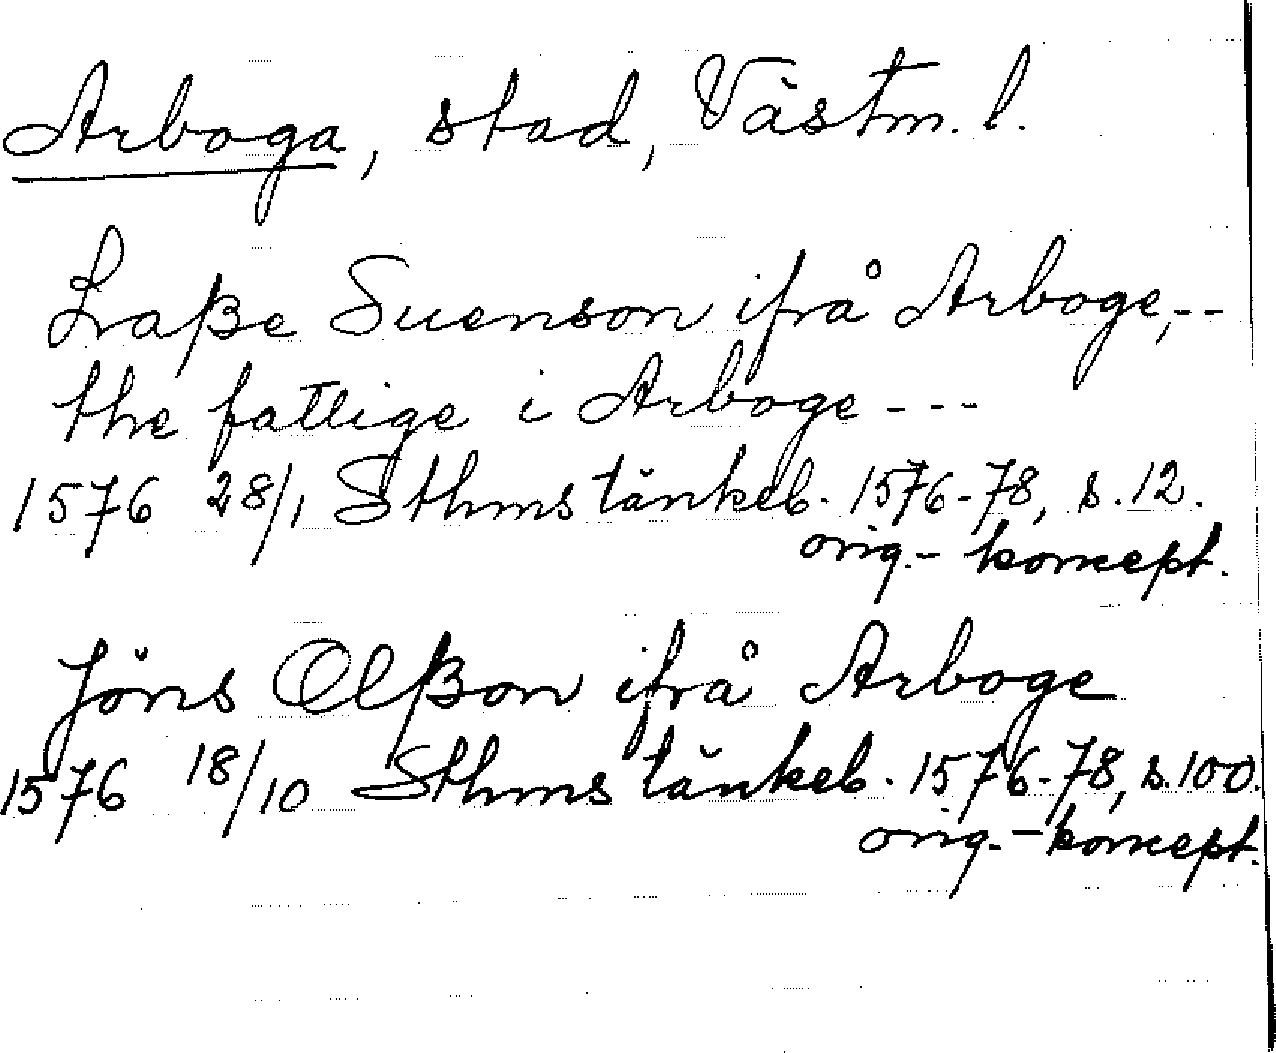 Arboga, stad, Västm. l.
Laße Suenson ifrå Arboge, --
the fattige i Arboge ---
1576 28/1 Sthms tänkeb. 1576-78, s. 12.
orig.-koncept.
Jöns Olßon ifrå Arboge
1576 18/10 Sthms tänkeb. 1576-78, s. 100.
orig.-koncept.